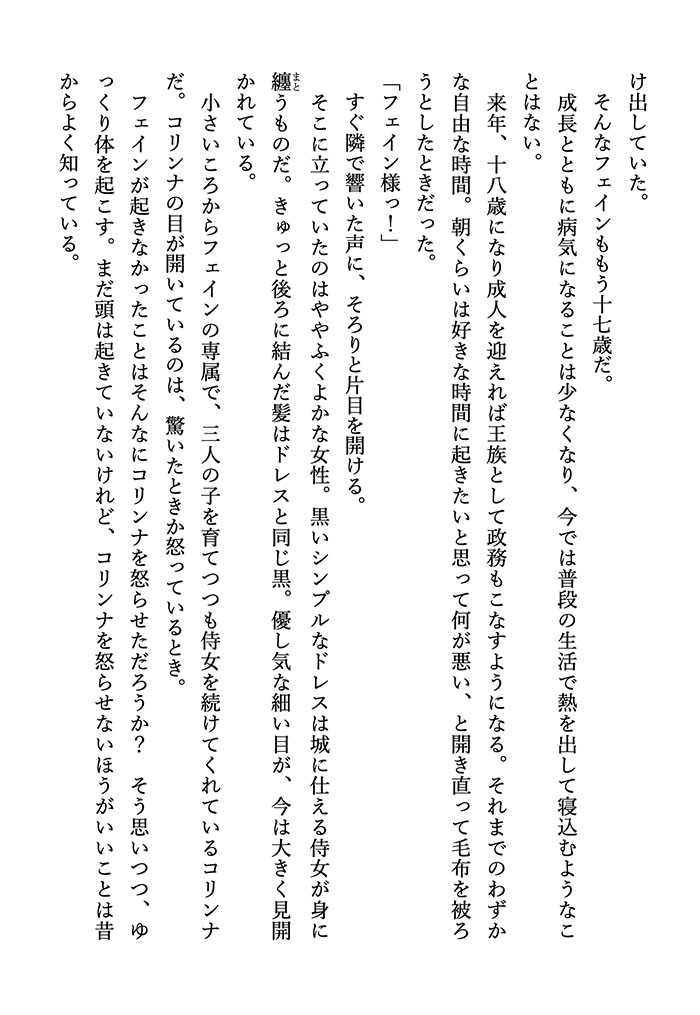 け出していた。
　そんなフェインももう十七歳だ。
　成長とともに病気になることは少なくなり、今では普段の生活で熱を出して寝込むようなこ
とはない。
　来年、十八歳になり成人を迎えれば王族として政務もこなすようになる。それまでのわずか
な自由な時間。朝くらいは好きな時間に起きたいと思って何が悪い、と開き直って毛布を被ろ
うとしたときだった。
「フェイン様っ！」
　すぐ隣で響いた声に、そろりと片目を開ける。
　そこに立っていたのはややふくよかな女性。黒いシンプルなドレスは城に仕える侍女が身に
纏まとうものだ。きゅっと後ろに結んだ髪はドレスと同じ黒。優し気な細い目が、今は大きく見開
かれている。
　小さいころからフェインの専属で、三人の子を育てつつも侍女を続けてくれているコリンナ
だ。コリンナの目が開いているのは、驚いたときか怒っているとき。
　フェインが起きなかったことはそんなにコリンナを怒らせただろうか？　そう思いつつ、ゆ
っくり体を起こす。まだ頭は起きていないけれど、コリンナを怒らせないほうがいいことは昔
からよく知っている。